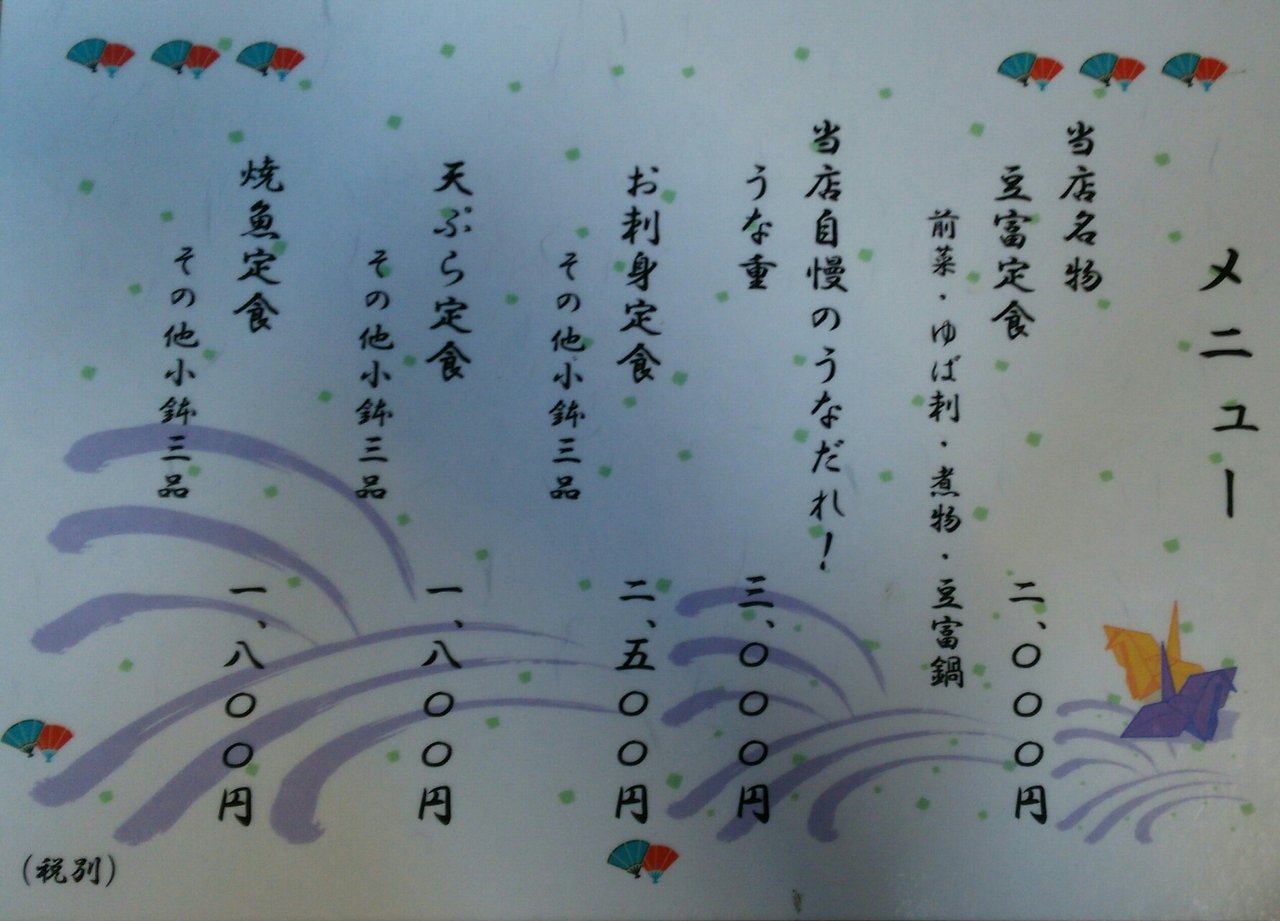 メニュー
当店名物
豆富定食 二、〇〇〇円
前菜・ゆば刺・煮物・豆富鍋
当店自慢のうなだれ!
うな重 三、〇〇〇円
お刺身定食 二、五〇〇円
その他小鉢三品
天ぷら定食 一、八〇〇円
その他小鉢三品
焼魚定食 一、八〇〇円
その他小鉢三品
(税別)